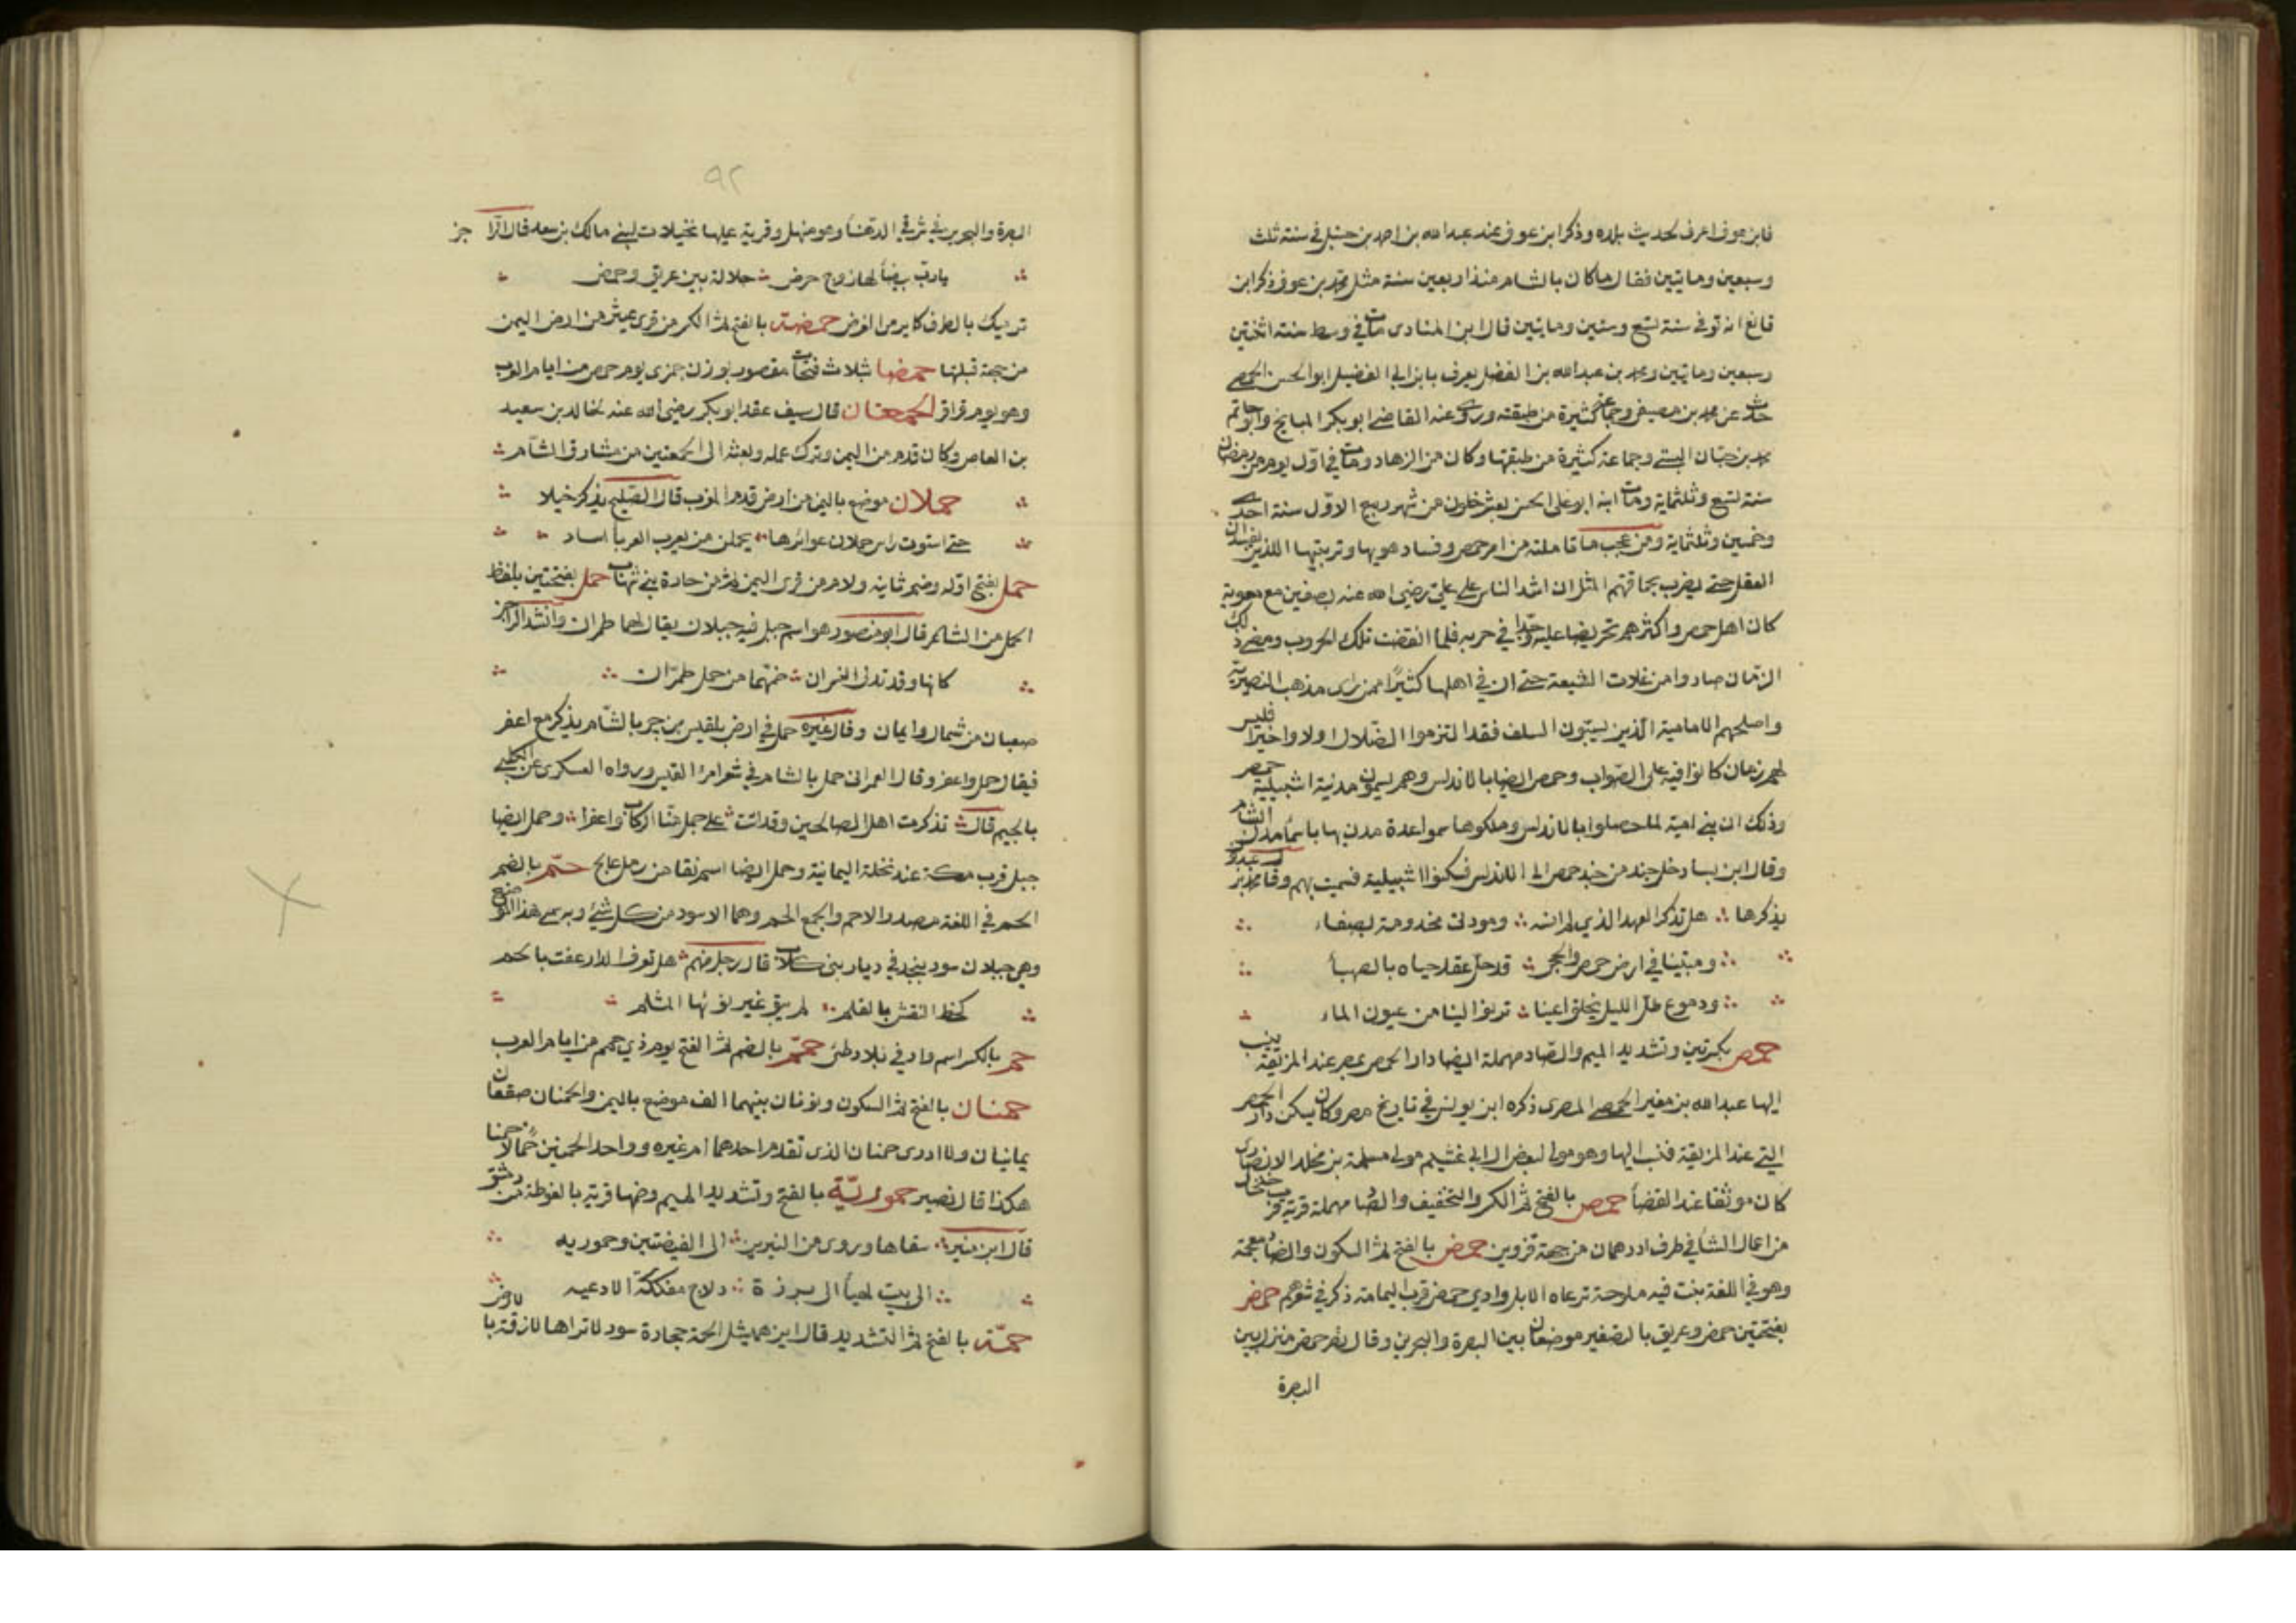 فابن عوف اعرف لحديث بلده وذكر ابن عوف عند عبد الله بن احمد بن حنبل في سنة ثلث
وسبعين ومايتين فقال ما كان بالشام منذ اربعين سنة مثل محمد بن عوف وذكر ابن
قانع انه توفي سنة تسع وستين ومايتين قال ابن المنادى مات في وسط سنة اثنتين
وسبعين ومايتين ومحمد بن عبد الله بن الفضل يعرف بابن ابي الفضيل ابو الحسن الحمصي
حدث عن محمد بن مصفى وجماعة كثيرة من طبقته وروى عنه القاضي ابو بكر الميانجي وابو حاتم
محمد بن حبان البستي وجماعة كثيرة من طبقتها وكان من الزهاد ومات في اول يوم من رمضان
سنة تسع وثلثماية ومات ابنه ابو علي الحسن لعشر خلون من شهر ربيع الاول سنة احدى
وخمسين وثلثماية ومن عجب ما تاملته من امر حمص وفساد هويها وتربتها اللذين يفسدان
العقل حتى يضرب بحماقتهم المثل ان اشد الناس على علي رضي الله عنه بصفين مع معوية
كان اهل حمص واكثرهم تحريضا عليه وجدا في حربه فلما انقضت تلك الحروب ومضى ذلك
الزمان صاروا من غلات الشيعة حتى ان في اهلها كثيرا ممن راى مذهب النصيرية
واصلهم الامامية الذين يسبون السلف فقد التزموا الضلال اولا واخيرا فليس
لهم زمان كانوا فيه على الصواب وحمص ايضا بالاندلس وهم يسمون مدينة اشبيلية حمص
وذلك ان بني امية لما حصلوا بالاندلس وملكوها سموا عدة مدن بها باسما مدن الشام
وقال ابن بسام دخل جند من جند حمص الى الاندلس فسكنوا اشبيلية فسميت بهم وقال محمد بن عبدون
يذكرها هل تذكر العهد الذي لم انسه ومودتي مخدومة بصفاء
ومبيتنا في ارض حمص والحجى قد حل عقد حباه بالصهبا
ودموع طل الليل تخلق اعينا ترنو الينا من عيون الماء
حمص بكسرتين وتشديد الميم والصاد مهملة ايضا دار الحمص بمصر عند المربعة ينسب
اليها عبد الله بن منير الحمصي المصرى ذكره ابن يونس في تاريخ مصر وكان يسكن دار الحمص
التي عند المربعة فنسب اليها وهو مولى لبعض ال ابي غشيم مولى مسلمة بن مخلد الانصارى
كان موثقا عند القضا حمص بالفتح ثم الكسر والتخفيف والصاد مهملة قرية قرب خلخال
من اعمال الشا في طرف اذربيجان من جهة قزوين حمض بالفتح ثم السكون والضاد معجمة
وهو في اللغة نبت فيه ملوحة ترعاه الابل وادي حمض قرب اليمامة ذكر في شعرهم حمض
بفتحتين حمض وعريق بالتصغير موضعان بين البصرة والبحرين وقال نصر حمض منزل بين
البصرة
٩٢
البصرة والبحرين في شرقي الدهنا وهو منهل وقرية عليها نخيلات لبني مالك بن سعد قال الراجز
يا رب بيضا لها زوج حرض حلالة بين عريق وحمض
ترميك بالطرف كما يرمى الغرض حمضة بالفتح ثم الكسر من قرى عثر من ارض اليمن
من جهة قبلتها حمضا بثلاث فتحات مقصور بوزن جمزى يوم حمض من ايام العرب
وهو يوم قراقر الحمقتان قال سيف عقد ابو بكر رضي الله عنه لخالد بن سعيد
بن العاص وكان قدم من اليمن وترك عمله وبعثه الى الحمقتين من مشارق الشام
حملان موضع باليمن من ارض قدم المغرب قال الصليحي يذكر خيلا
حتى استوت راس حملان عوائرها يحملن من يعرب العربا اساد
حمل بفتح اوله وضم ثانيه ولام من قرى اليمن ثم من حازة بني شهاب حمل بفتحتين بلفظ
الحمل من الشا قال ابو منصور هو اسم جبل فيه جبلان يقال لهما طمران وانشد الراجز
كانها وقد تدلى النسران ضمهما من حمل طمران
صعبان من شمال وايمان وقال غيره حمل في ارض بلقين بن جسر بالشام يذكر مع اعفر
فيقال حمل واعفر وقال العمراني حمل بالشام في شعر امرء القيس ورواه السكرى عن الكلبي
بالجيم قال تذكرت اهل الصالحين وقد اتت على حمل منا الركاب واعفرا وحمل ايضا
جبل قرب مكة عند نخلة اليمانية وحمل ايضا اسم نقا من رمل عالج حم بالضم
الحم في اللغة مصدر الاحم والجمع الحم وهما الاسود من كل شئ وبه سمي هذا الموضع
وهي جبلان سود بنجد في ديار بنى كلاب قال رجل منهم هل تعرف الدار عفت بالحم
كخط النقش بالقلم لم يبق غير نؤيها المثلم
حم بالكسر اسم واد في بلاد طئ حمم بالضم ثم الفتح يوم ذي حمم من ايام العرب
حمنان بالفتح ثم السكون ونونان بينهما الف موضع باليمن والحمنان صقعان
يمانيان ولا ادرى حمنان الذى تقدم احدهما ام غيره وواحد الحمنين حمنا
هكذا قال نصير حمورية بالفتح وتشديد الميم وضمها قرية بالغوطة من دمشق
قال ابن منير سقاها وروى من النيربين الى الغيضتين وحموريه
الى بيت لهيا الى برزة دلاج مفككة الاوعيه
حمة بالفتح ثم التشديد قال ابن شميل الحمة حجارة سود لا تراها لازقة بالارض